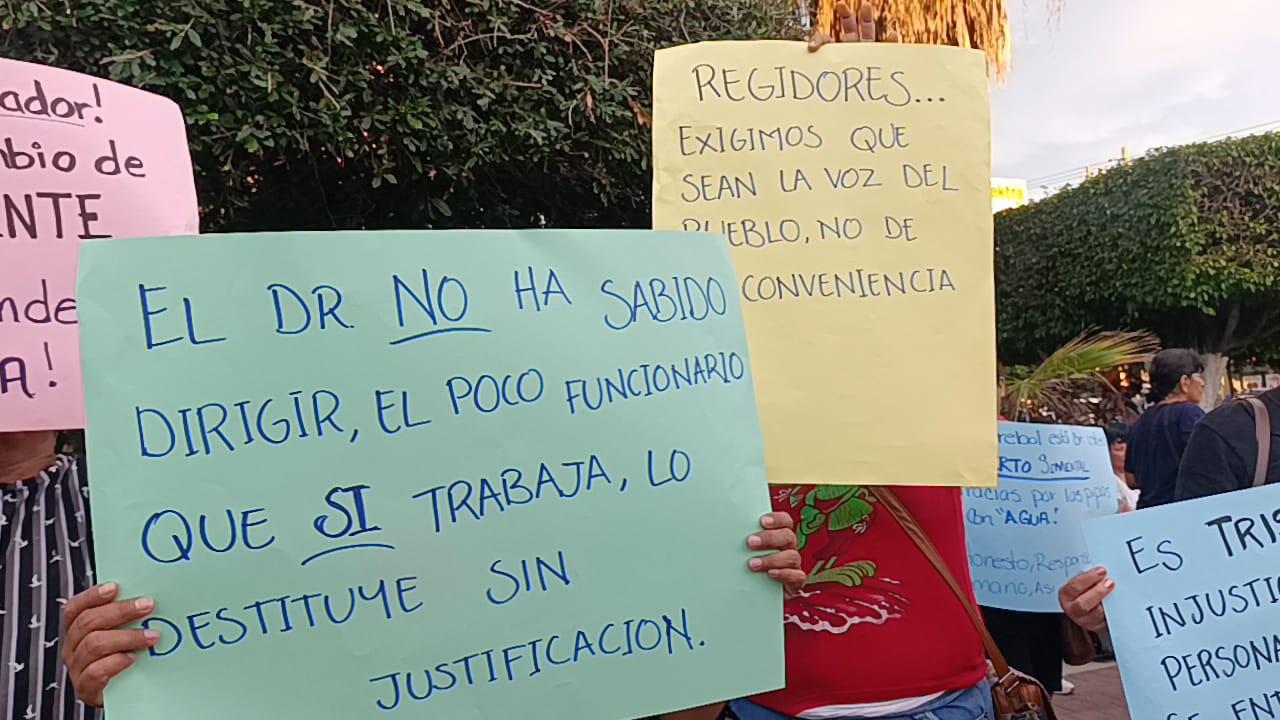 ador!
bio de
NTE
nde
A!
EL DR. NO HA SABIDO
DIRIGIR, EL POCO FUNCIONARIO
QUE SI TRABAJA, LO
DESTITUYE SIN
JUSTIFICACION.
REGIDORES...
EXIGIMOS QUE
SEAN LA VOZ DEL
PUEBLO, NO DE
CONVENIENCIA
rebol está
RTO SIMENTAL
racias por las pipas
con "AGUA."
onesto, Respo
mano, As
ES TRIS
INJUSTI
PERSONA
SE ENT